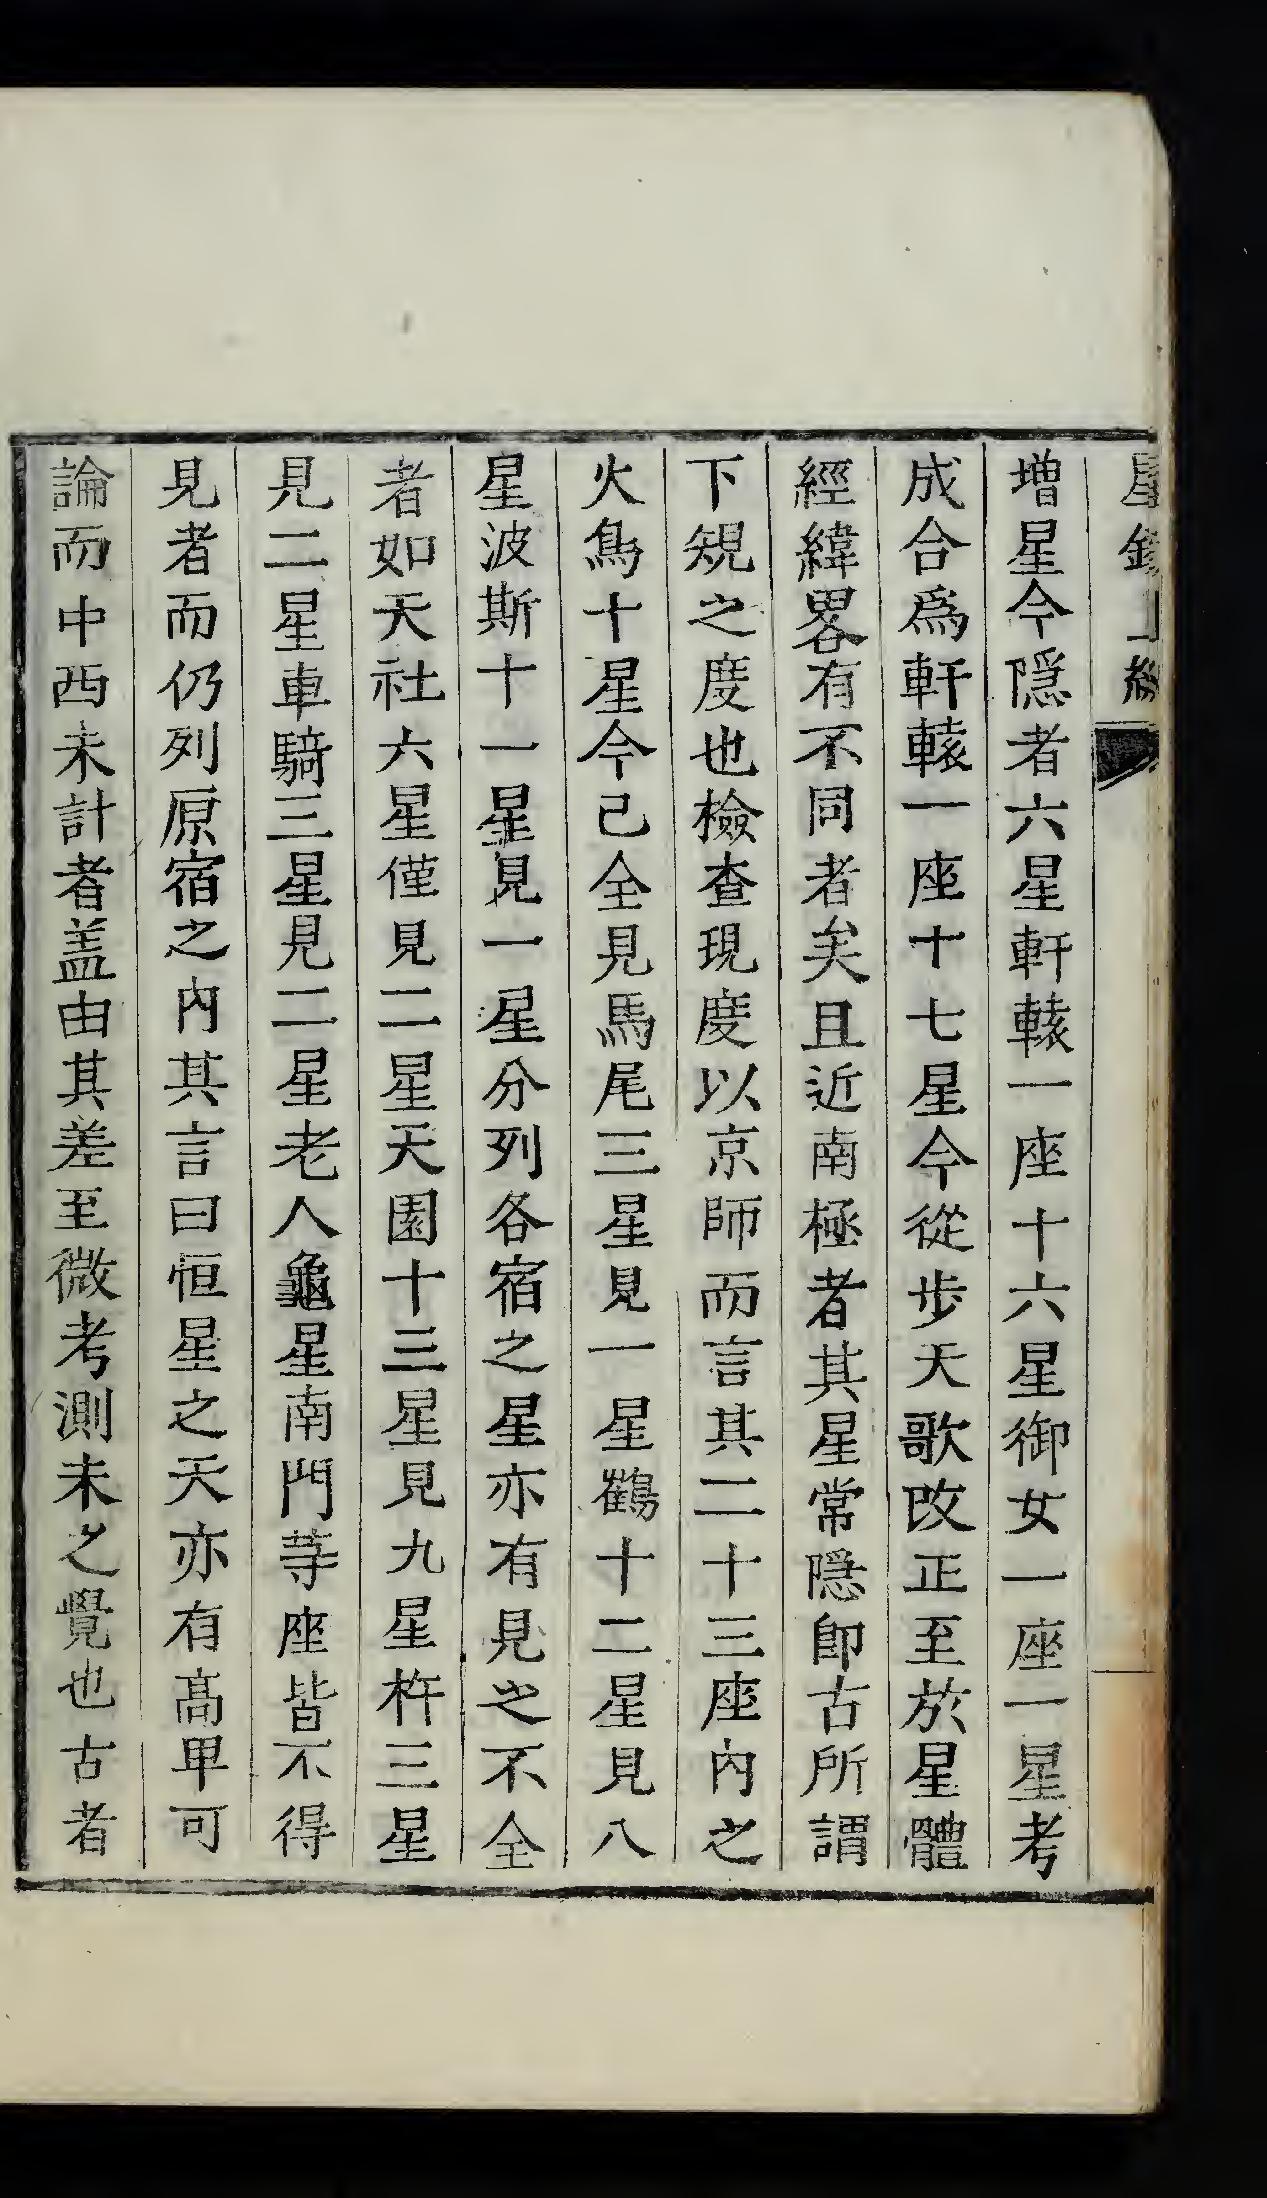 增星今隠者六星軒轅一座十六星御女一座一星考
成合爲軒轅一座十七星今從步天歌改正至於星體
經緯畧有不同者矣且近南極者其星常隠卽古所謂
下規之度也檢查現度以京師而言其二十三座內之
火鳥十星今己全見馬尾三星見一星鶴十二星見八
星波斯十一星見一星分列各宿之星亦有見之不全
者如天社六星僅見二星天園十三星見九星杵三星
見二星車騎三星見二星老人龜星南門䓁座皆不得
見者而仍列原宿之內其言曰恒星之天亦有髙卑可
論而中西未計者盖由其差至微考測未之覺也古者